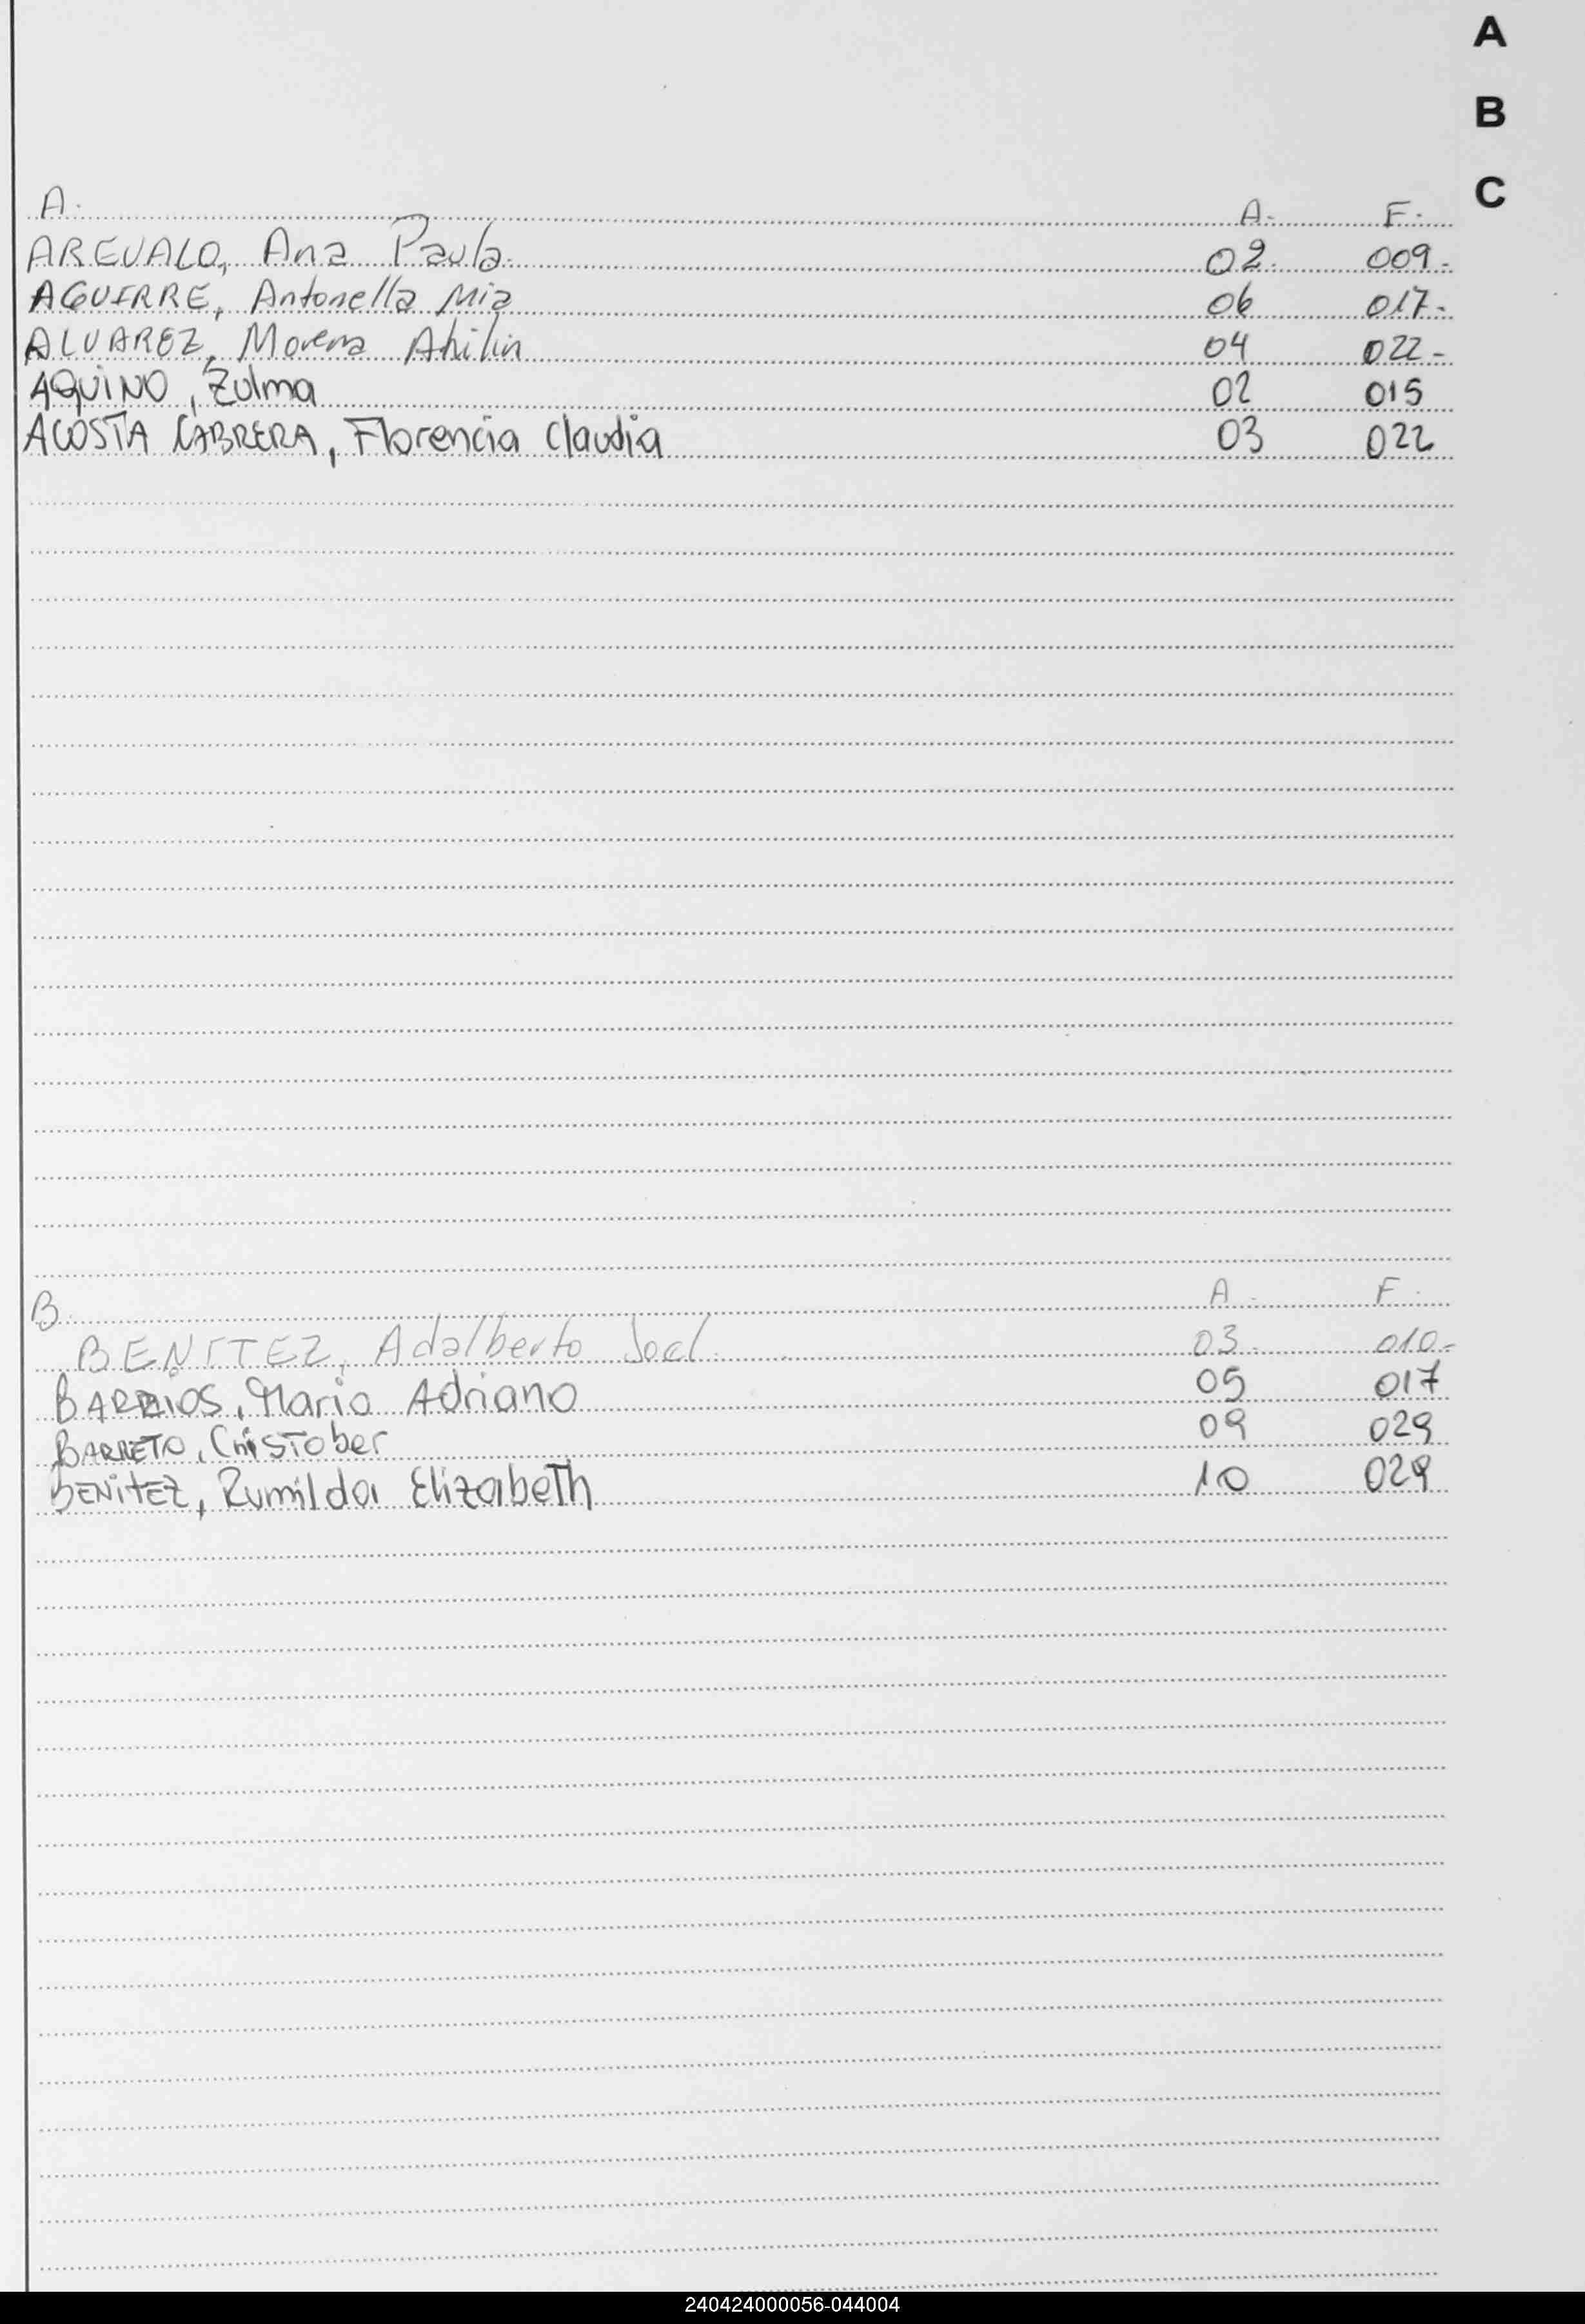 A
B
C
A. A. F.
AREVALO, Ana Paula. 02. 009.-
AGUIRRE, Antonella Mia 06 017.-
ALVAREZ, Morena Ahilin 04 022.-
AQUINO, Zulma 02 015
ACOSTA CABRERA, Florencia Claudia 03 022
B. A. F.
BENITEZ, Adalberto Joel. 03. 010.-
BARRIOS, Mario Adriano 05 017
BARRETO, Cristober 09 029
BENITEZ, Rumilda Elizabeth 10 029
240424000056-044004